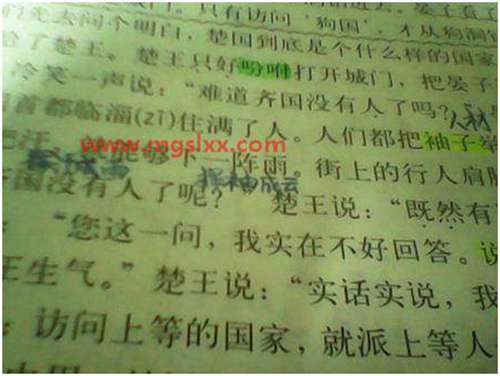 城门。只有访问‘狗国’，才从狗洞
们先去问个明白，楚国到底是个什么样的国家
给了楚王。楚王只好吩咐打开城门，把晏子
冷笑一声说：“难道齐国没有人了吗？
人材
国首都临淄(zī)住满了人。人们都把袖子举
www.mgslxx.com
把汗，就能够下一阵雨。街上的行人肩膀
挥袖成云
齐国没有人了呢？”楚王说：“既然有
：“您这一问，我实在不好回答。说
王生气。”楚王说：“实话实说，我
：访问上等的国家，就派上等人